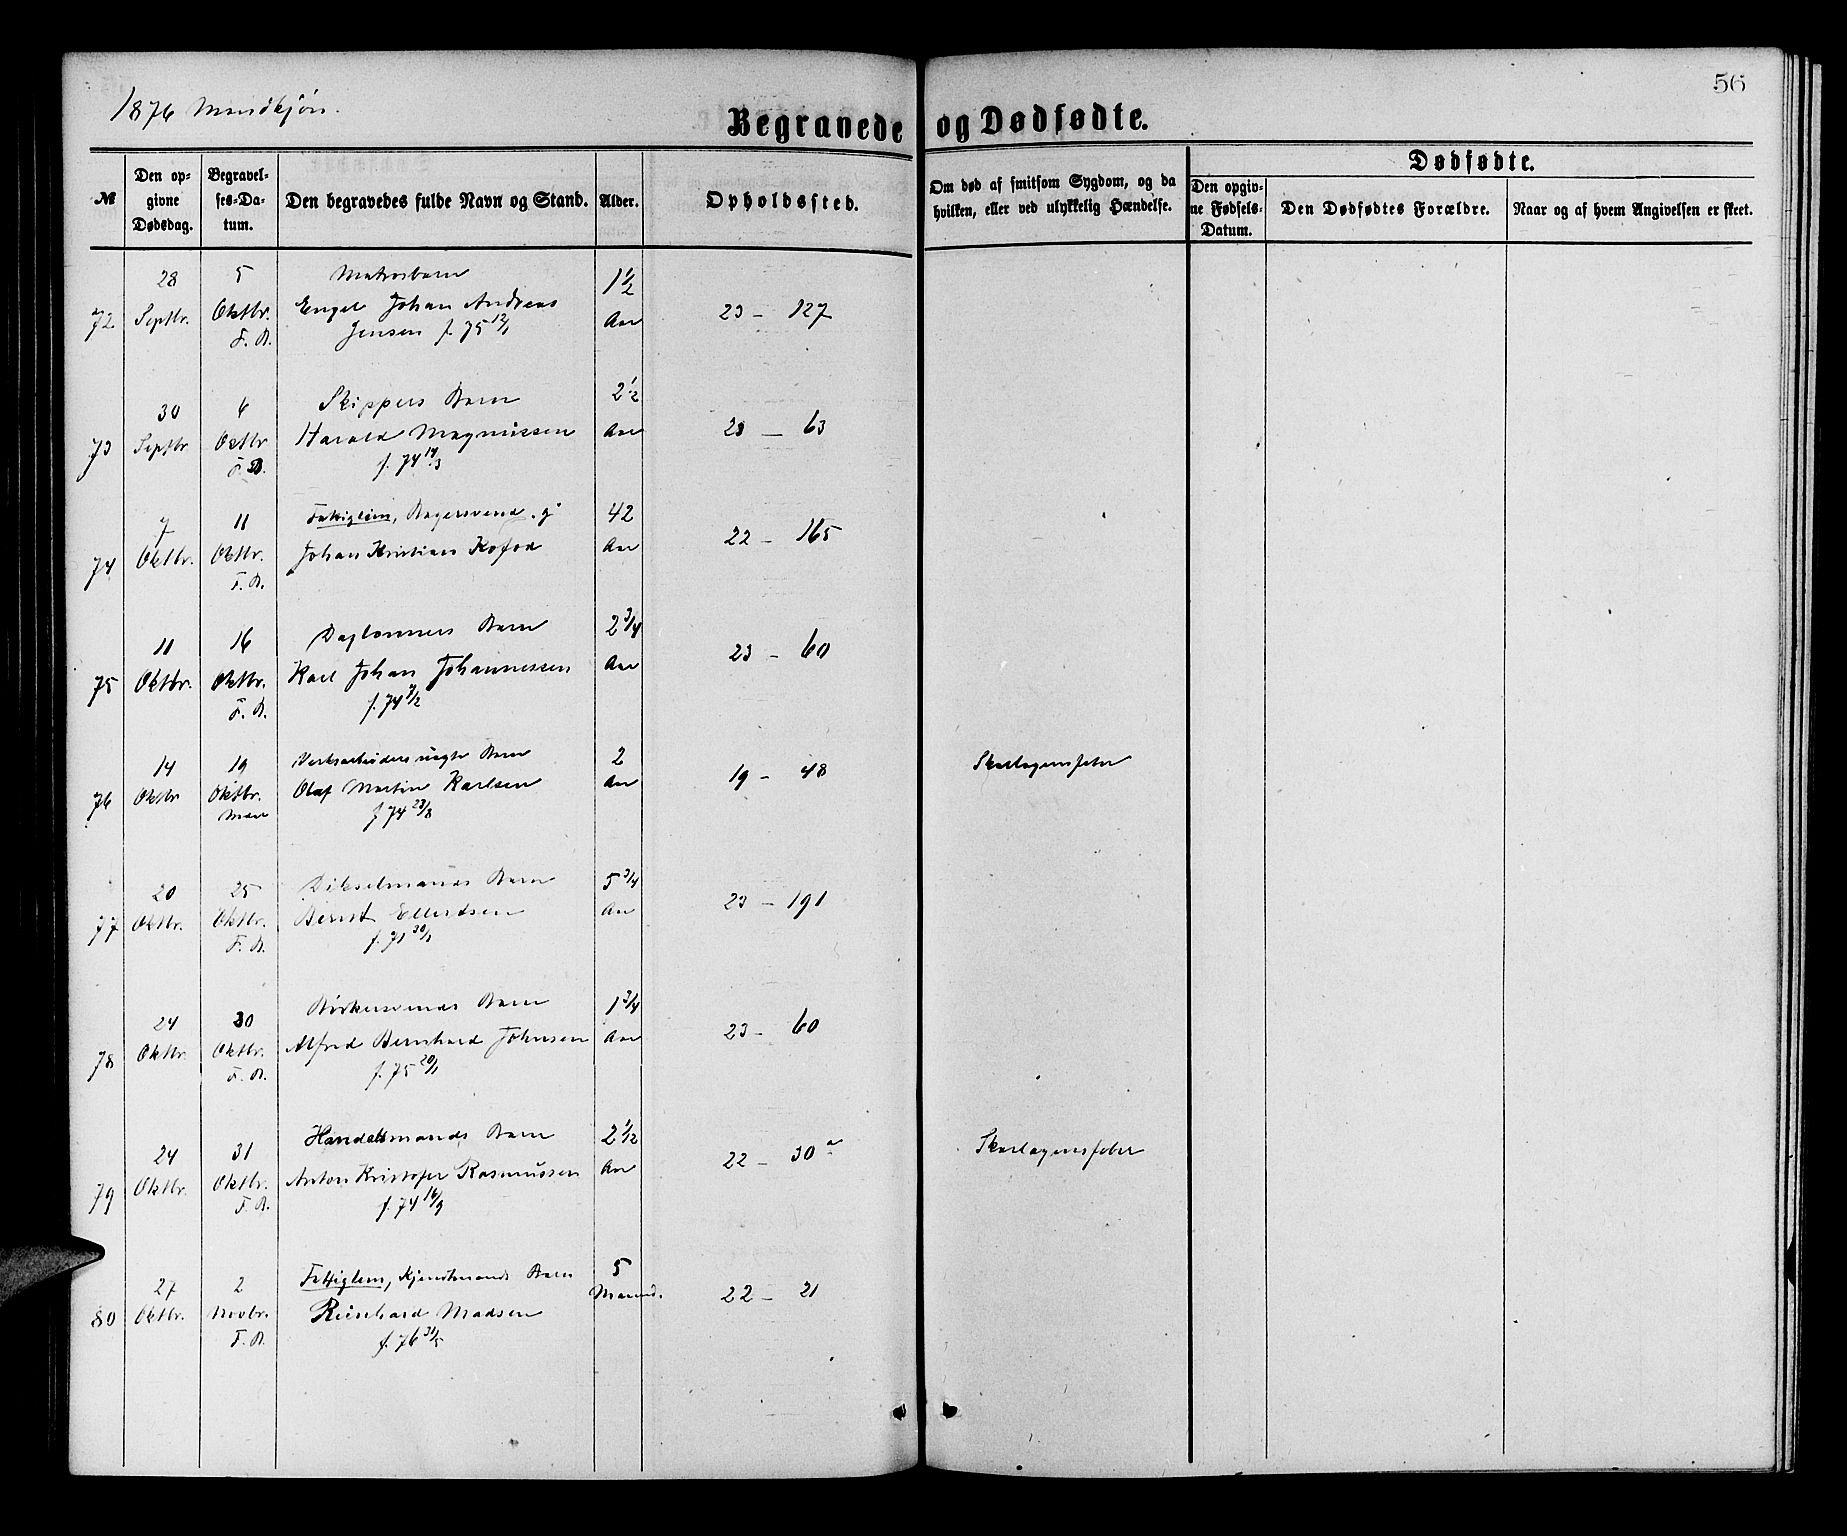 1876 Mandkjøn.
56
Begravede og Dødfødte.
№
Den opgivne Dødsdag.
Begravelses-Datum.
Den begravedes fulde Navn og Stand.
Alder.
Opholdssted.
Om død af smitsom Sygdom, og da hvilken, eller ved ulykkelig Hændelse.
Dødfødte.
Den opgivne Fødsels-Datum.
Den Dødfødtes Forældre.
Naar og af hvem Angivelsen er skeet.
28 5 Matrosbarn 1 1/2
72 Septbr. Oktbr. Engel Johan Andreas Aar 23 – 127
F. B. Jensen f. 75 12/1
30 6 Skippers Barn 2 1/2
73 Septbr Oktbr Harald Magnussen Aar 23 – 63
f. 74 14/3
7 11 Fattiglem, Bagersvend. g. 42
74 Oktbr. Oktbr. Johan Kristian Kofod Aar 22 – 165
F. B.
11 16 Daglønners Barn 2 3/4
75 Oktbr. Oktbr. Karl Johan Johannessen Aar 23 – 60
F. B. f. 74 7/2
14 19 Verksarbeiders uægte Barn 2
76 Oktbr Oktbr. Olaf Martin Karlsen Aar 19 – 48 Skarlagensfeber
f 74 23/8
20 25 Barn 5 3/4
77 Oktbr. Oktbr. Bernt Ellertsen Aar 23 – 191
F. B. f. 71 30/1
24 30 Bødkersvends Barn 1 3/4
78 Oktbr. Oktbr. Alfred Bernhard Johnsen Aar 23 – 60
F. B. f. 75 20/1
24 31 Handelsmands Barn 2 1/12
79 Oktbr. Oktbr. Anton Kristofer Rasmussen Aar 22 – 30 a Skarlagensfeber
F. B. f. 74 16/9
27 2 Fattiglem, Barn 5
80 Oktbr. Novbr. Reinhard Madsen Maaned. 22 – 21
F. B. f. 76 31/5